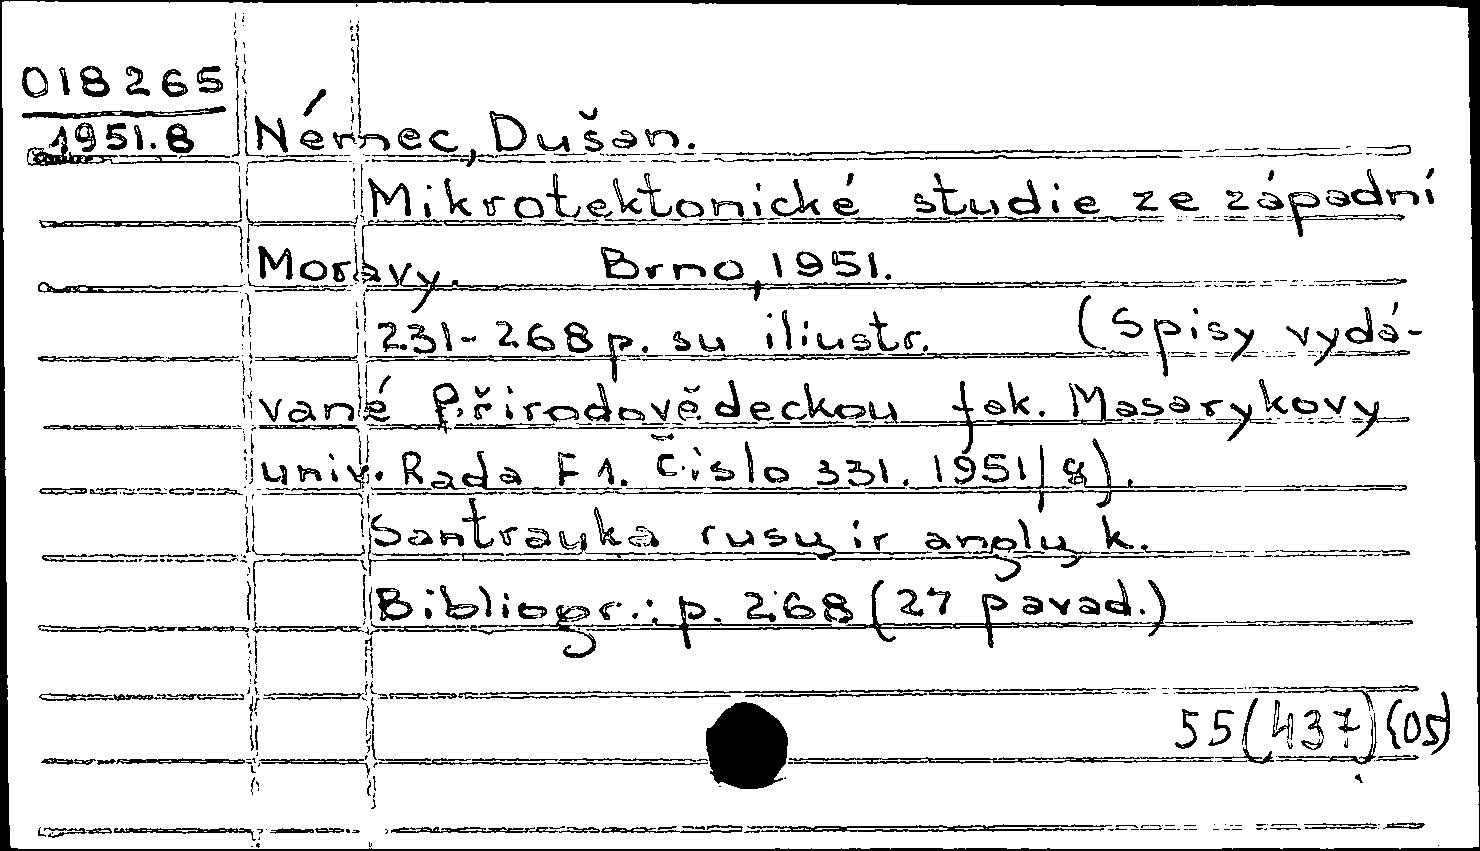 018265
1951.8
Némec, Dušan.
Mikrotektonické studie ze západní
Moravy. Brno, 1951.
231-268 p. su iliustr. (Spisy vydá-
vané Přirodovědeckou fak. Masarykovy
univ. Rada F 1. Čislo 331. 1951/8).
Santrauka rusų ir anglų k.
Bibliogr.: p. 268 (27 pavad.)
55(437)(05)